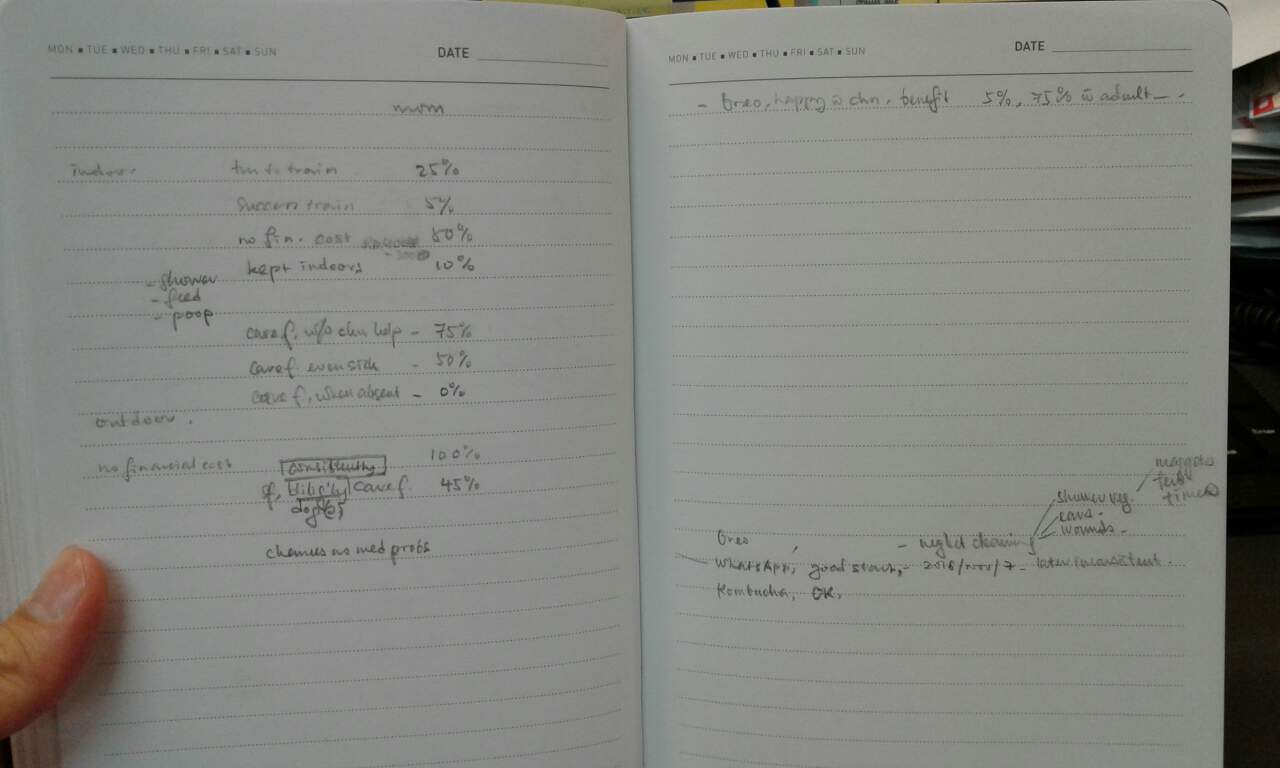 MON ▪ TUE ▪ WED ▪ THU ▪ FRI ▪ SAT ▪ SUN
DATE
mom
indoor.
train 25%
success train 5%
no fin. cost 80%
kept indoors 10%
- shower
- feed
- poop
care f. w/o chn help - 75%
care f. even sick - 50%
care f. when absent - 0%
outdoor.
no financial cost 100%
consistently
care f. 45%
chances no med probs
MON ▪ TUE ▪ WED ▪ THU ▪ FRI ▪ SAT ▪ SUN
DATE
- Oreo, happy w chn. benefit 5%, 75% w adult
maggots
ticks
shower reg.
ears.
wounds.
Oreo - neglect cleaning
WhatsApp, good start, - 2016/Nov/7 - later inconsistent.
Kombucha, OK,